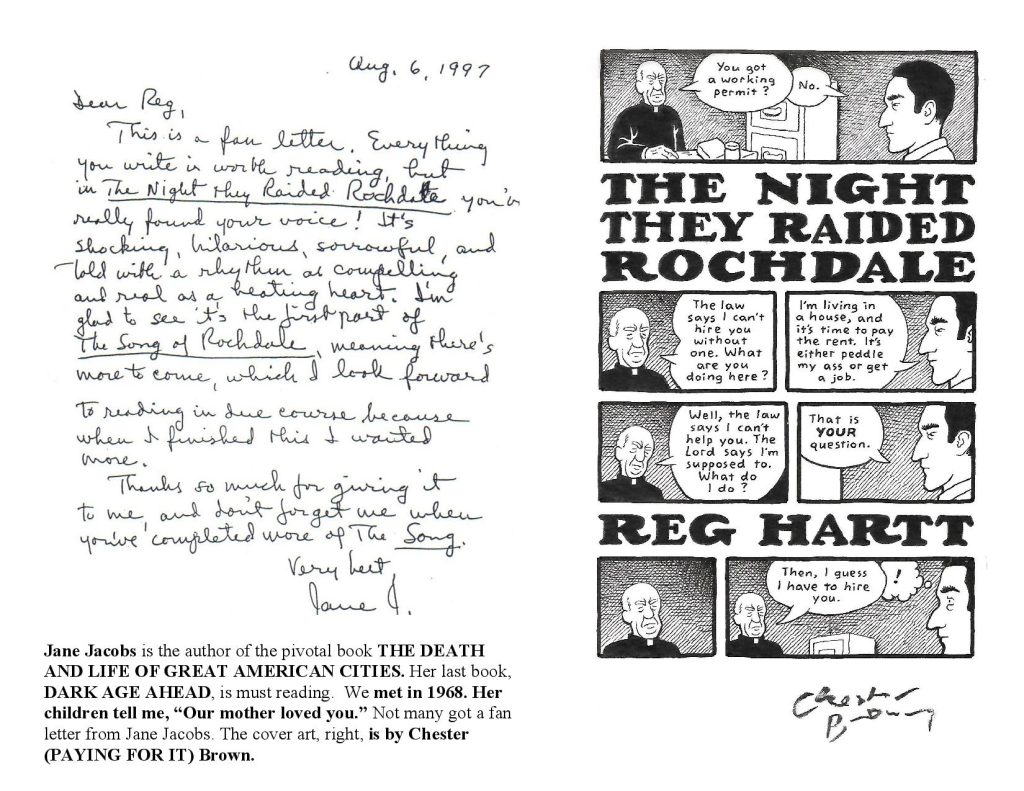 Aug. 6, 1997
Dear Reg,
This is a fan letter. Everything
you write is worth reading, but
in The Night They Raided Rochdale you've
really found your voice! It's
shocking, hilarious, sorrowful, and
told with a rhythm as compelling
and real as a beating heart. I'm
glad to see it's the first part of
The Song of Rochdale, meaning there's
more to come, which I look forward
to reading in due course because
when I finished this I wanted
more.
Thanks so much for giving it
to me, and don't forget me when
you've completed more of The Song.
Very best
Jane J.
Jane Jacobs is the author of the pivotal book THE DEATH
AND LIFE OF GREAT AMERICAN CITIES. Her last book,
DARK AGE AHEAD, is must reading.  We met in 1968. Her
children tell me, “Our mother loved you.” Not many got a fan
letter from Jane Jacobs. The cover art, right, is by Chester
(PAYING FOR IT) Brown.
You got
a working
permit?
No.
THE NIGHT
THEY RAIDED
ROCHDALE
The law
says I can't
hire you
without
one. What
are you
doing here?
I'm living in
a house, and
it's time to pay
the rent. It's
either peddle
my ass or get
a job.
Well, the law
says I can't
help you. The
Lord says I'm
supposed to.
What do
I do?
That is
YOUR
question.
REG HARTT
Then, I guess
I have to hire
you.
!
Chester
Brown